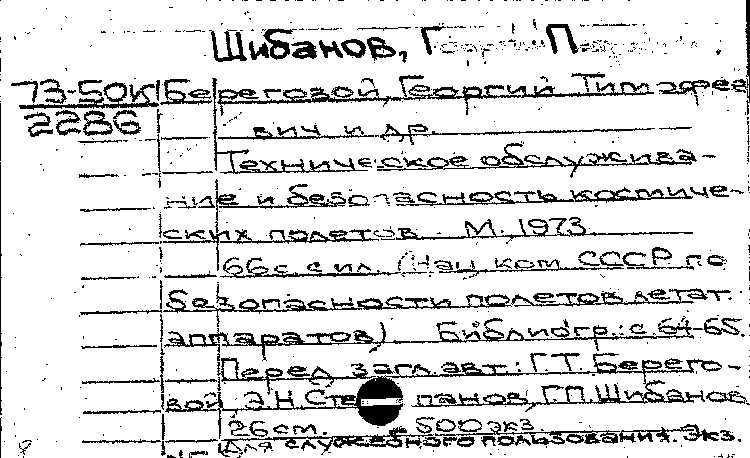 Шибанов, Г П
73-50К Береговой, Георгий Тимофее
2286 вич и др.
Техническое обслужива-
ние и безопасность космиче-
ских полетов. М., 1973.
66с. с ил. (Нац. ком. СССР по
безопасности полетов летат.
аппаратов). Библиогр.: с. 64-65.
Перед загл. авт.: Г.Т. Берего-
вой Э.Н. Сте панов, Г.П. Шибанов
26 см. - 500 экз.
Для служебного пользования. Экз.